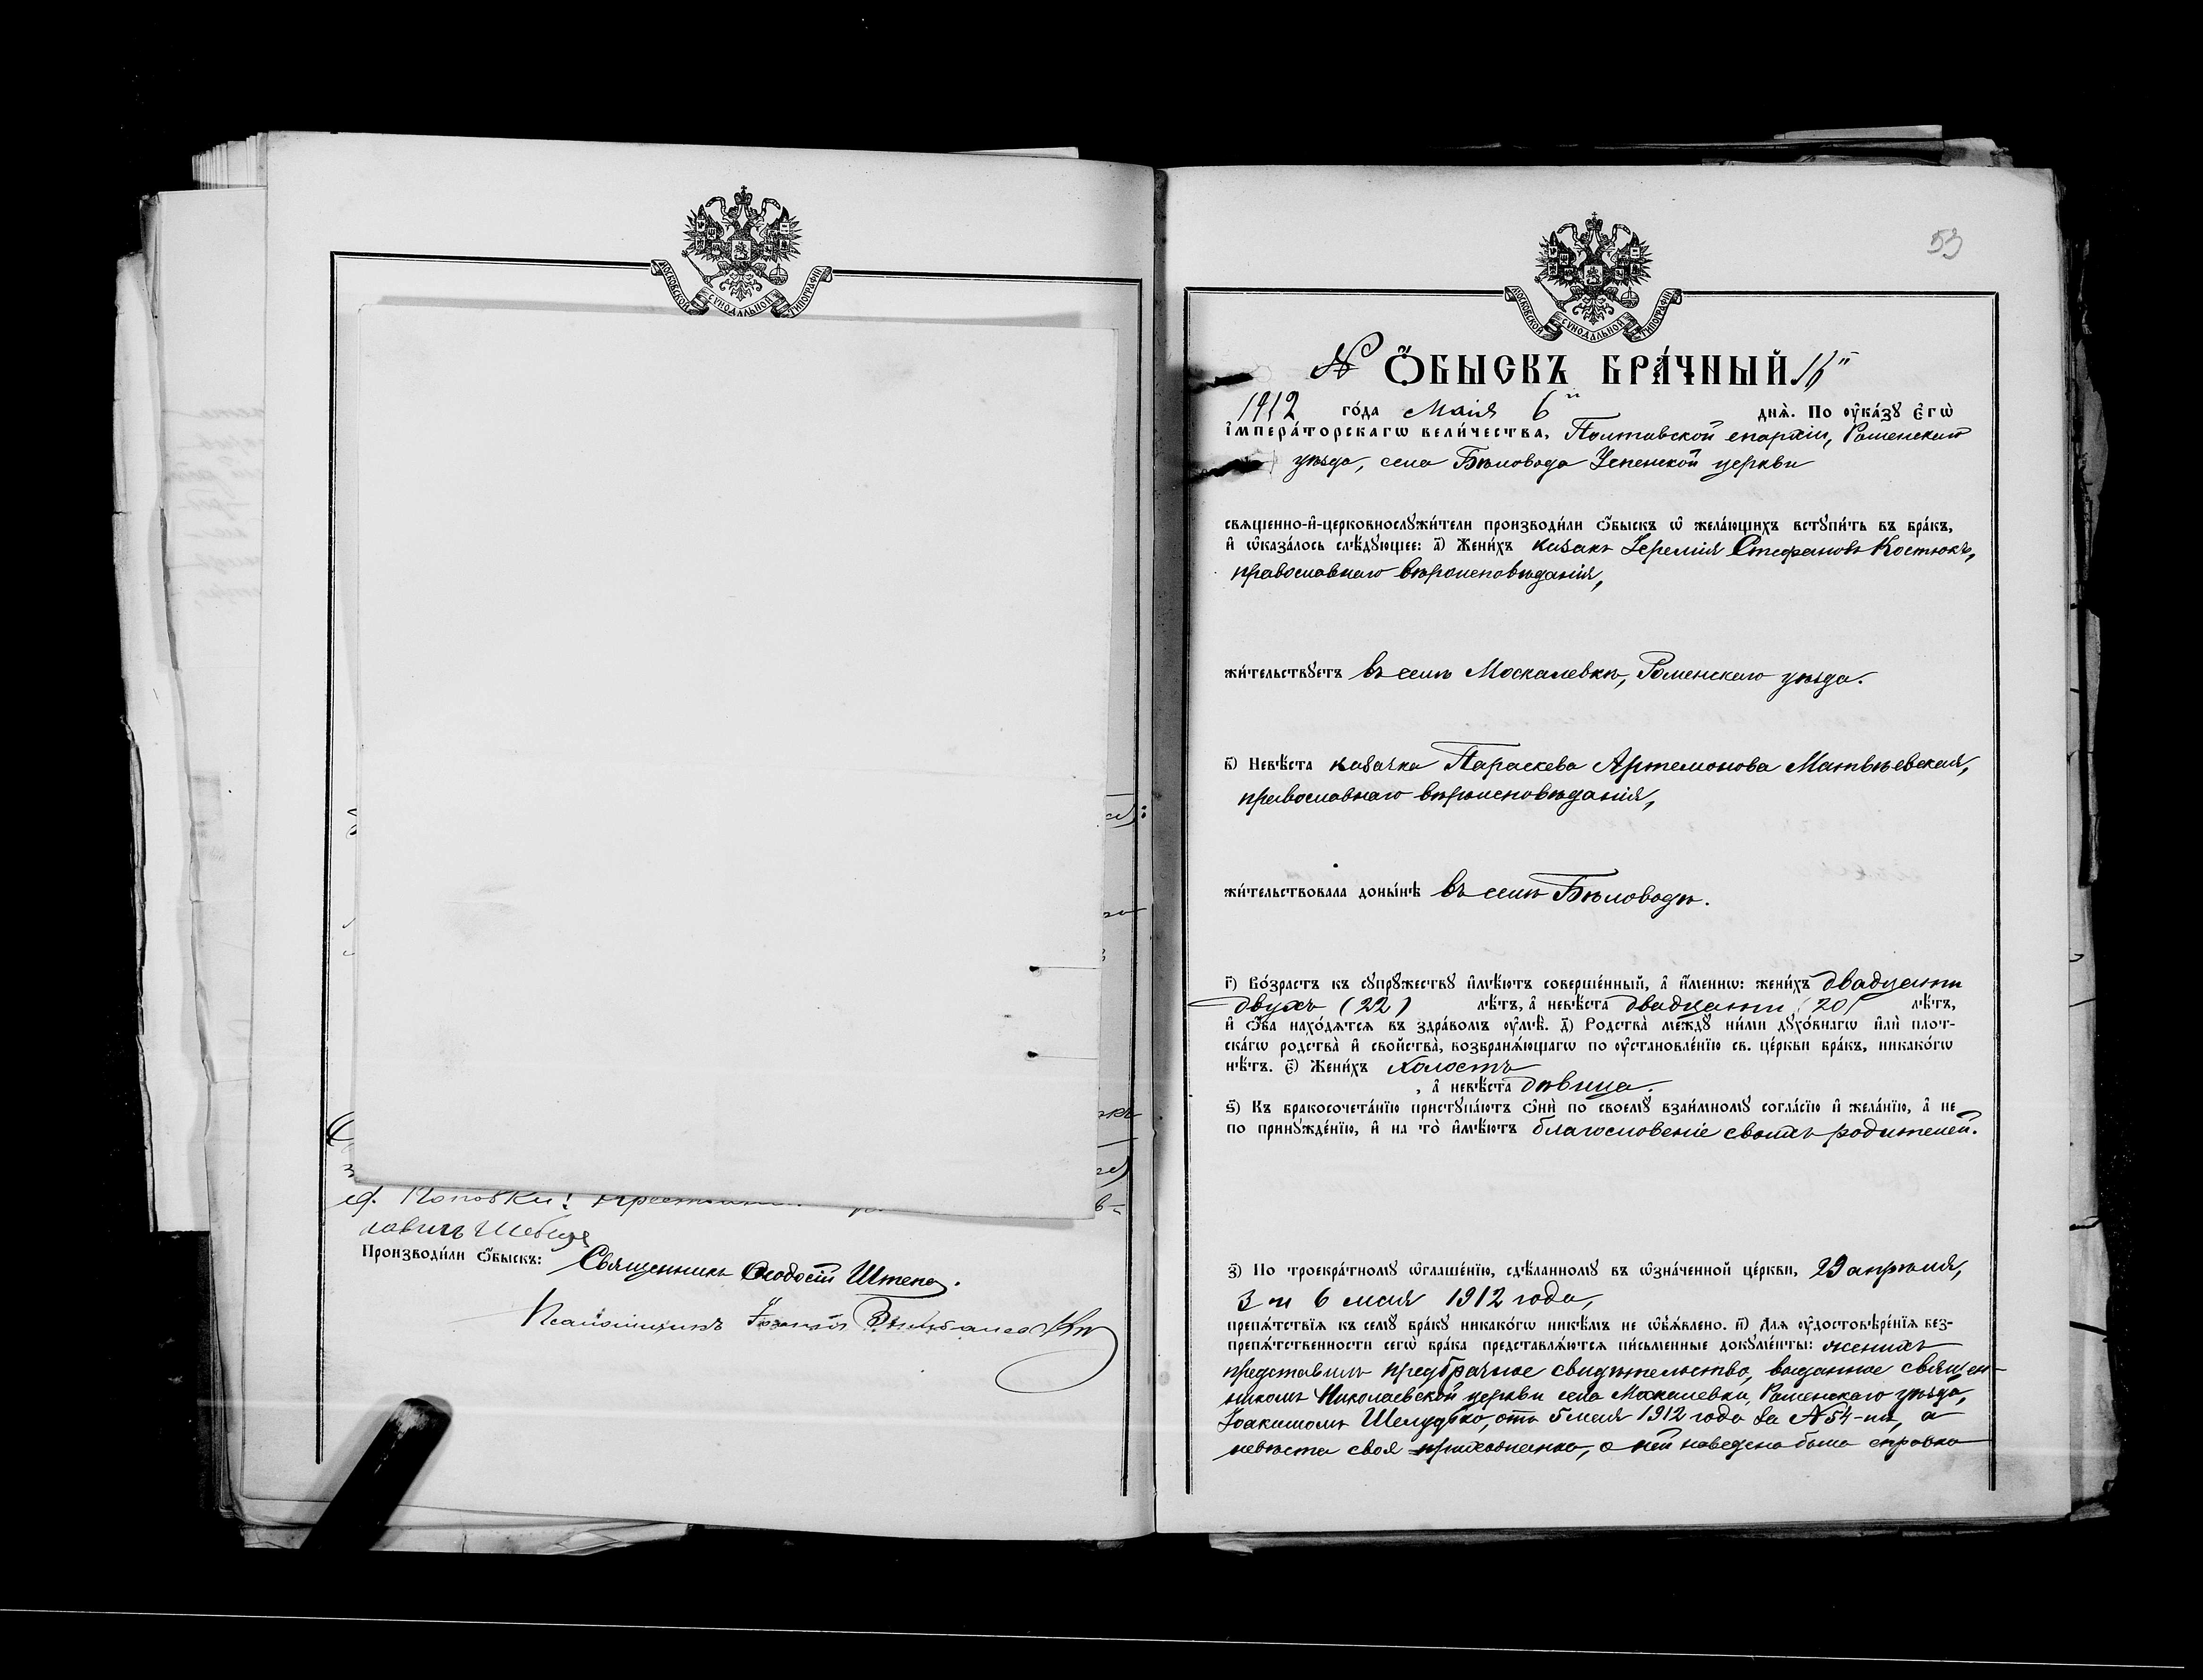 МОСКОВСКОЙ СУНОДАЛЬНОЙ ТИПОГРАФІИ
с. Поповки:
лавичъ
Производи́ли ѻ҆́быскъ: Священникъ Ѳеодосій Штепа.
Псаломщикъ
53
МОСКОВСКОЙ СУНОДАЛЬНОЙ ТИПОГРАФІИ
№ Ѻ҆́БЫСКЪ БРА́ЧНЫЙ 16й
1912 го́да Маія 6й днѧ̀. По оу҆ка́зꙋ є҆гѡ̀
і҆мпера́торскагѡ вели́чества, Полтавской епархіи, Роменскаго
уѣзда, села Бѣловода Успенской церкви
свѧщенно-и҆-церковнослꙋжи́тели производи́ли ѻ҆́быскъ ѡ҆ жела́ющихъ встꙋпи́ть въ бра́къ,
и҆ ѡ҆каза́лось слѣ́дꙋющее: а҃) Жени́хъ казакъ Іеремія Стефановъ Костюкъ,
православнаго вѣроисповѣданія,
жи́тельствꙋетъ въ селѣ Москалевкѣ, Роменскаго уѣзда.
в҃) Невѣ́ста казачка Параскева Артемонова Матвѣевская,
православнаго вѣроисповѣданія,
жи́тельствовала доны́нѣ въ селѣ Бѣловодѣ.
г҃) Во́зрастъ къ сꙋпрꙋ́жествꙋ и҆мѣ́ютъ соверше́нный, а҆ и҆́меннѡ: жени́хъ двадцати
двухъ (22) лѣ́тъ, а҆ невѣ́ста двадцати (20) лѣ́тъ,
и҆ ѻ҆́ба нахо́дѧтсѧ въ здра́вомъ оу҆мѣ̀. д҃) Родства̀ ме́ждꙋ ни́ми дꙋхо́внагѡ и҆лѝ плот-
ска́гѡ родства̀ и҆ свойства̀, возбранѧ́ющагѡ по оу҆становле́нїю св. це́ркви бра́къ, никако́гѡ
нѣ́тъ. є҃) Жени́хъ холостъ
, а҆ невѣ́ста дѣвица.
ѕ҃) Къ бракосочета́нїю пристꙋпа́ютъ ѻ҆нѝ по своемꙋ̀ взаи́мномꙋ согла́сїю и҆ жела́нїю, а҆ не
по принꙋжде́нїю, и҆ на то̀ и҆мѣ́ютъ благословеніе своихъ родителей.
з҃) По троекра́тномꙋ ѡ҆глаше́нїю, сдѣ́ланномꙋ въ ѡ҆зна́ченной це́ркви, 29 апрѣля,
3 и 6 мая 1912 года,
препѧ́тствїѧ къ семꙋ̀ бра́кꙋ никако́гѡ никѣ́мъ не ѡ҆б̾ѧ́влено. и҃) Длѧ оу҆достовѣ́ренїѧ без-
препѧ́тственности сегѡ̀ бра́ка представлѧ́ютсѧ пи́сьменные докꙋме́нты: женихъ
представилъ предбрачное свидѣтельство, выданное священ-
никомъ Николаевской церкви села Москалевки, Роменскаго уѣзда,
Іоакимомъ Шелудько, отъ 5 мая 1912 года за № 54-мъ, а
невѣста своя прихожанка, о ней наведена была справка